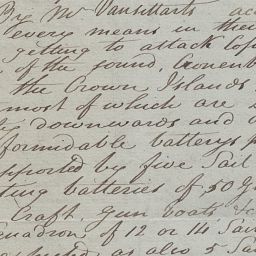 By Mr Vansittarts acc
every means in their
getting to attack Cop
of the sound, Cronenb
the Crown Islands
most of which are
downwards and
formidable batterys
supported by five Sail
ting batteries of 50 G
Craft, Gun boats, &c
quadron of 12 or 14 Sail
as also 5 Sai